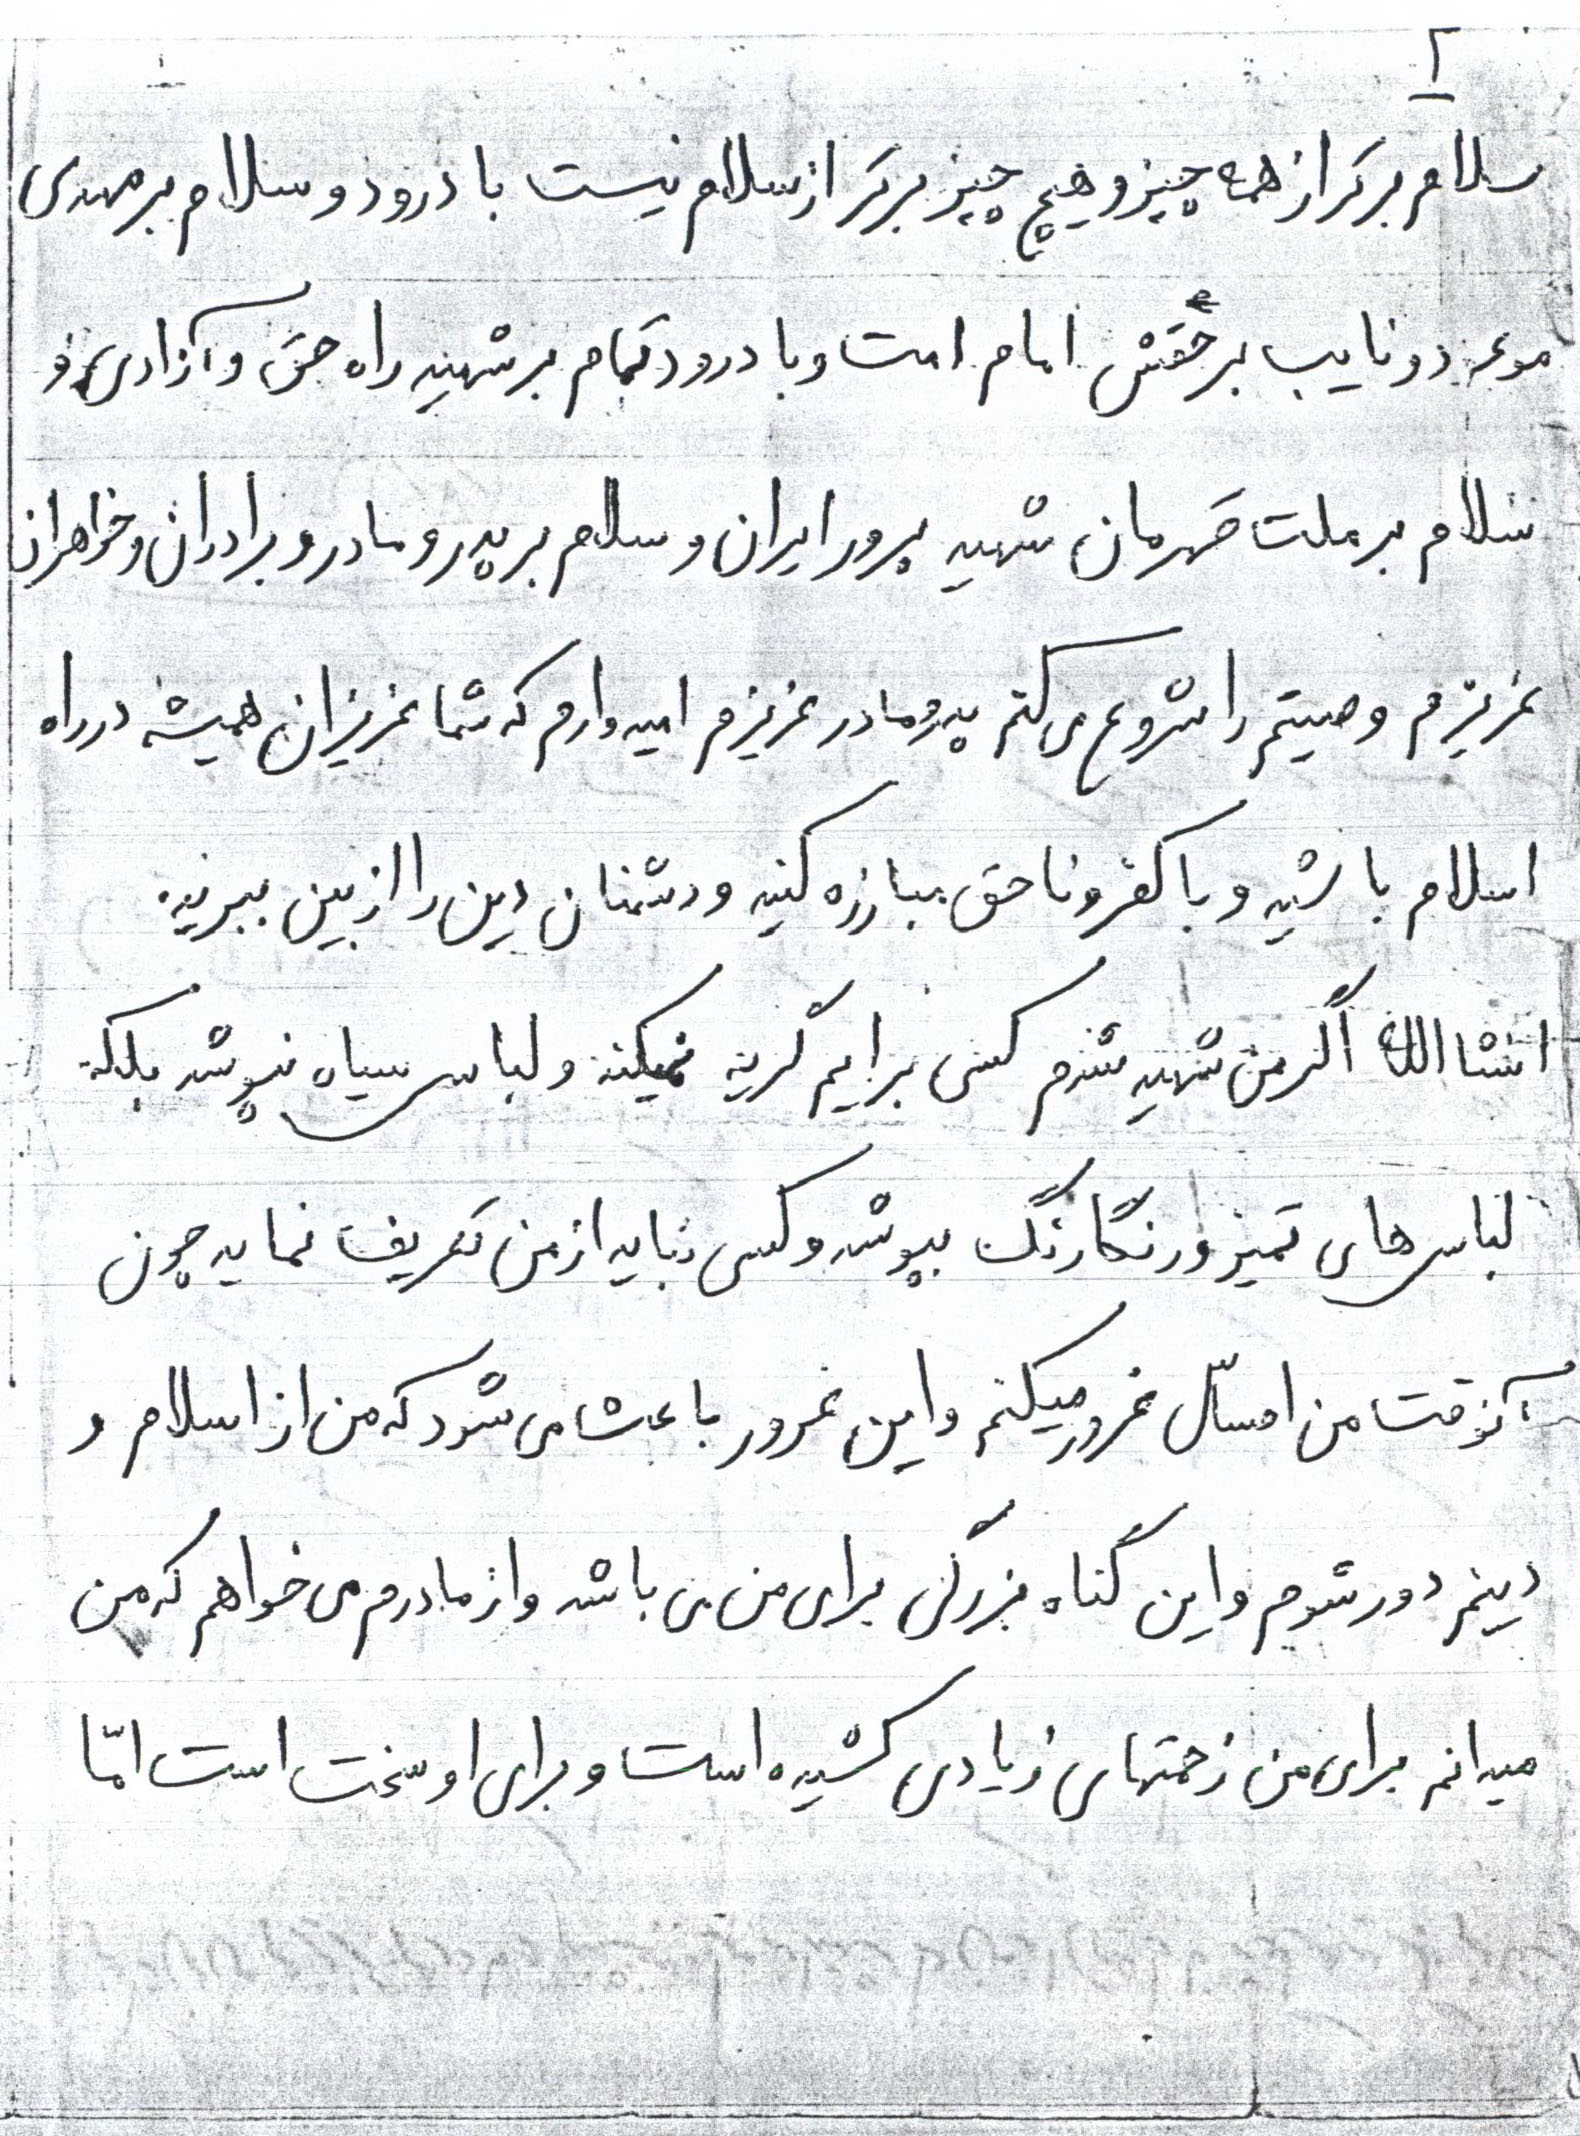 ۲
سلام برتر از همه چیز و هیچ چیز برتر از سلام نیست با درود و سلام بر مهدی
موعود و نایب برحقش امام امت و با درود تمام بر شهید راه حق و آزادی و
سلام بر ملت قهرمان شهید پرور ایران و سلام بر پدر و مادر و برادران و خواهران
عزیزم وصیتم را شروع می کنم پدر و مادر عزیزم امیدوارم که شما عزیزان همیشه در راه
اسلام باشید و با کفر و ناحق مبارزه کنید و دشمنان دین را از بین ببرید.
انشاالله اگر من شهید شدم کسی برایم گریه نمیکند و لباس سیاه نپوشد بلکه
لباس های تمیز و رنگارنگ بپوشد و کسی نباید از من تعریف نماید چون
آنوقت من غرور میکنم و این غرور باعث می شود که من از اسلام و
دینم دور شوم و این گناه بزرگی برای من می باشد و از مادرم می خواهم که من
میدانم برای من زحمتهای زیادی کشیده است و برای او سخت است امّا